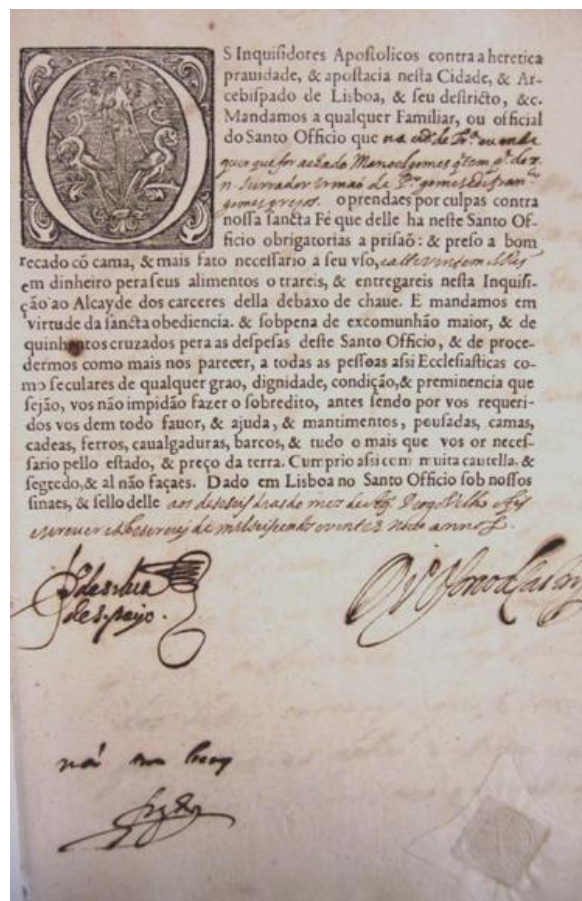 OS Inquiſidores Apoſtolicos contra a heretica
prauidade, & apoſtacia neſta Cidade, & Ar-
cebiſpado de Lisboa, & ſeu deſtricto, &c.
Mandamos a qualquer Familiar, ou official
do Santo Officio que na
quer que for achado Manoel gomes
n. Surrador Irmaõ de gomes
gomes o prendaes por culpas contra
noſſa ſancta Fé que delle ha neſte Santo Of-
ficio obrigatorias a priſaõ: & preſo a bom
recado cõ cama, & mais fato neceſſario a ſeu vſo,
em dinheiro pera ſeus alimentos o trareis, & entregareis neſta Inquiſi-
ção ao Alcayde dos carceres della debaxo de chaue. E mandamos em
virtude da ſancta obediencia. & ſobpena de excomunhão maior, & de
quinhentos cruzados pera as deſpeſas deſte Santo Officio, & de proce-
dermos como mais nos parecer, a todas as peſſoas aſsi Eccleſiaſticas co-
mo ſeculares de qualquer grao, dignidade, condição, & preminencia que
ſejão, vos não impidão fazer o ſobredito, antes ſendo por vos requeri-
dos vos dem todo fauor, & ajuda, & mantimentos, pouſadas, camas,
cadeas, ferros, caualgaduras, barcos, & tudo o mais que vos or neceſ-
ſario pello eſtado, & preço da terra. Cumprio aſsi com muita cautella, &
ſegredo, & al não façaes. Dado em Lisboa no Santo Officio ſob noſſos
ſinaes, & ſello delle aos do mez de Velho
de mil